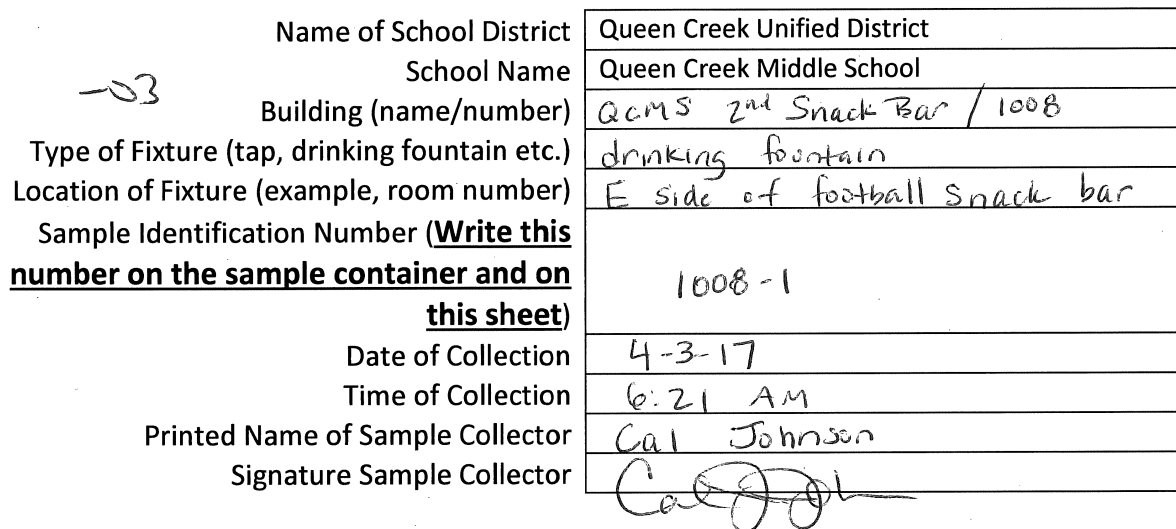 Name of School District Queen Creek Unified District
School Name Queen Creek Middle School
-03
Building (name/number) QCMS 2nd Snack Bar / 1008
Type of Fixture (tap, drinking fountain etc.) drinking fountain
Location of Fixture (example, room number) E side of football snack bar
Sample Identification Number (Write this
number on the sample container and on
this sheet) 1008-1
Date of Collection 4-3-17
Time of Collection 6:21 AM
Printed Name of Sample Collector Cal Johnson
Signature Sample Collector